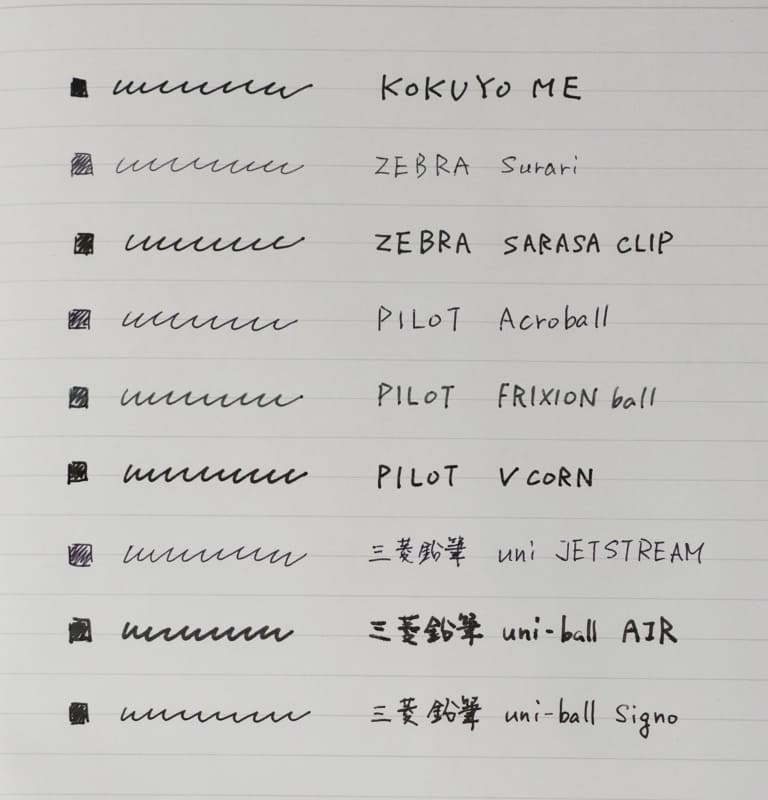 KOKUYO ME
ZEBRA Surari
ZEBRA SARASA CLIP
PILOT Acroball
PILOT FRIXION ball
PILOT V CORN
三菱鉛筆 uni JETSTREAM
三菱鉛筆 uni-ball AIR
三菱鉛筆 uni-ball Signo